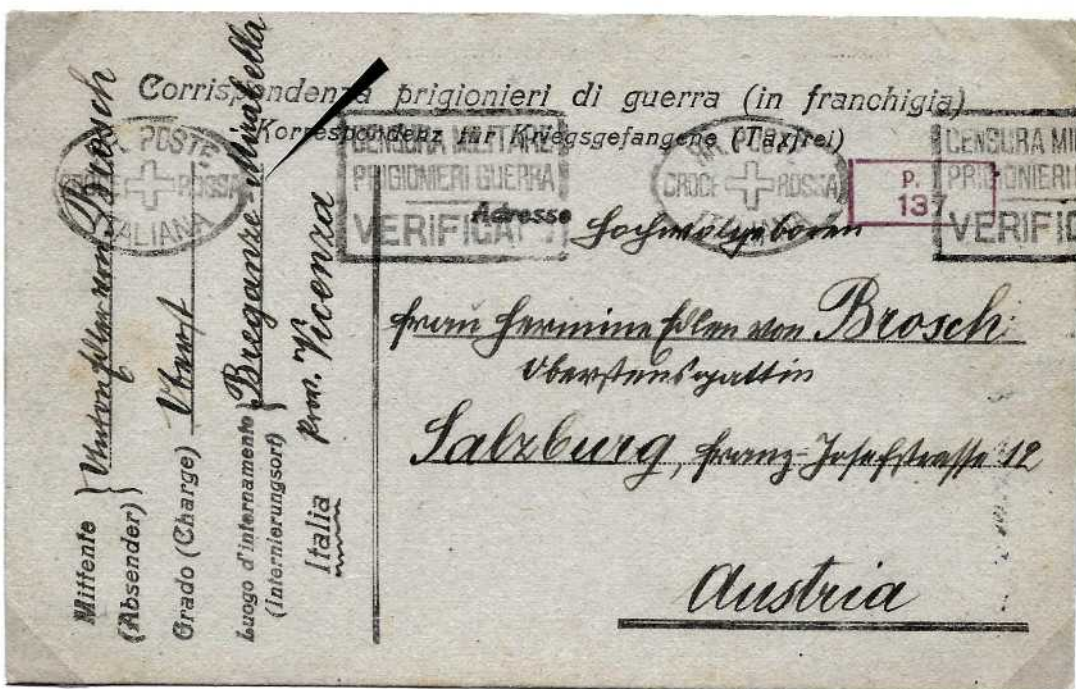 Corrispondenza prigionieri di guerra (in franchigia)
Korrespondenz für Kriegsgefangene (Taxfrei)
POSTE
CROCE ROSSA
ITALIANA
CENSURA MILITARE
PRIGIONIERI GUERRA
VERIFICAT
POSTE
CROCE ROSSA
ITALIANA
P.
137
CENSURA MI
PRIGIONIERI
VERIFIC
Adresse
Hochwolgeboren
Frau Hermine Edlen von Brosch
Oberstensgattin
Salzburg, Franz-Josefstrasse 12
Austria
Mittente
(Absender)
von Brosch
Grado (Charge) Oberst
Luogo d'internamento
(Internierungsort)
Breganze-Mirabella
Prov. Vicenza
Italia